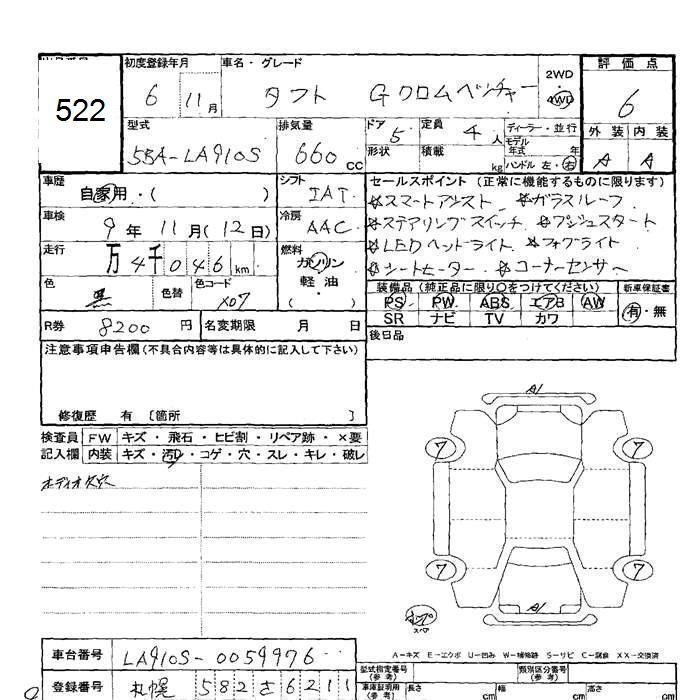 522
初度登録年月 車名・グレード 2WD 評価点
6 11月 タフト Gクロムベンチャー 4WD 6
型式 排気量 ドア 5 定員 4人 ディーラー・並行 外装 内装
5BA-LA910S 660cc 形状 積載 kg モデル年式 年 A A
ハンドル 左・右
車歴 シフト セールスポイント (正常に機能するものに限ります)
自家用・( ) IAT ☆スマートアシスト ☆ガラスルーフ
車検 9年 11月(12日) 冷房 AAC ☆ステアリングスイッチ ☆プッシュスタート
走行 万4千046km 燃料 ガソリン ☆LEDヘッドライト ☆フォグライト
軽油 ☆シートヒーター ☆コーナーセンサー
色 黒 色替 色コード X07 ( )
装備品 (純正品に限り〇をつけてください) 新車保証書
PS PW ABS エアB AW 有・無
SR ナビ TV カワ
R券 8200円 名変期限 月 日 後日品
注意事項申告欄(不具合内容等は具体的に記入して下さい)
修復歴 有 〔箇所 〕
検査員 FW キズ・飛石・ヒビ割・リペア跡・×要
記入欄 内装 キズ・汚れ・コゲ・穴・スレ・キレ・破レ
オーディオ欠穴
A1
7 7
7 7
A1
スペア
A-キズ E-エクボ U-凹み W-補修跡 S-サビ C-腐食 XX-交換済
車台番号 LA910S-0059976
型式指定番号(参考) 類別区分番号(参考)
登録番号 札幌 582 さ 6211
車庫証明用(参考) 長さ cm 幅 cm 高さ cm